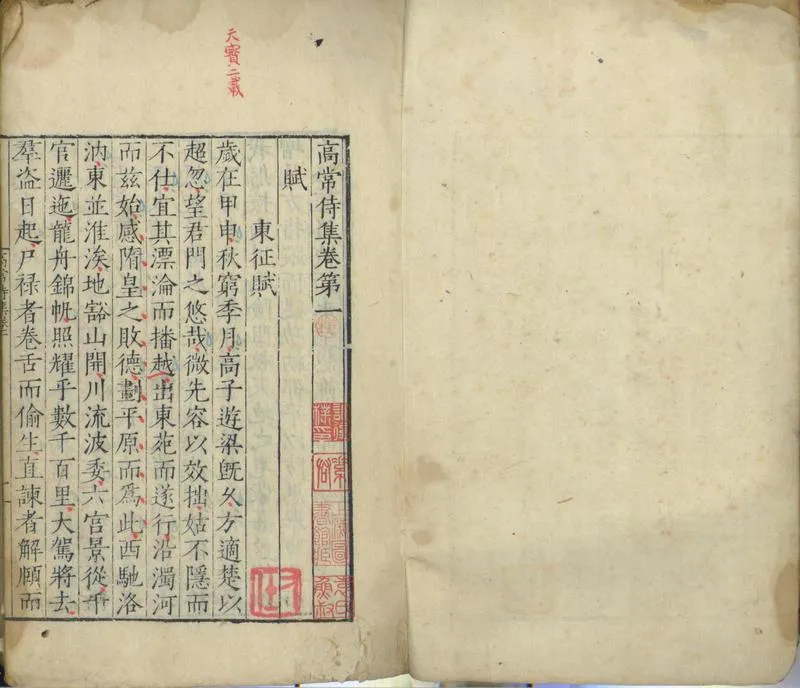 天寶二載
高常侍集卷第一
賦
東征賦
歲在甲申秋窮季月高子遊梁旣久方適楚以
超忽望君門之悠哉微先容以效拙姑不隱而
不仕宜其漂淪而播越出東苑而遂行沿濁河
而兹始感隋皇之敗德劃平原而爲此西馳洛
汭東並淮涘地豁山開川流波委六宮景從千
官邐迤龍舟錦帆照耀乎數千百里大駕將去
羣盗日起尸禄者卷舌而偷生直諫者解頤而